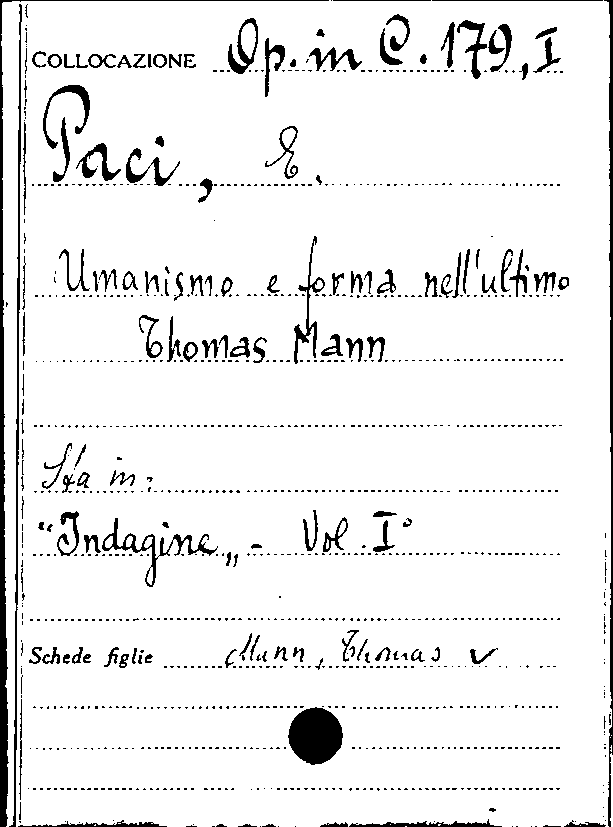 COLLOCAZIONE Op. in C. 179, I
Paci, E.
Umanismo e forma nell'ultimo
Thomas Mann
Sta in:
"Indagine„ - Vol. I°
Schede figlie Mann, Thomas ✓